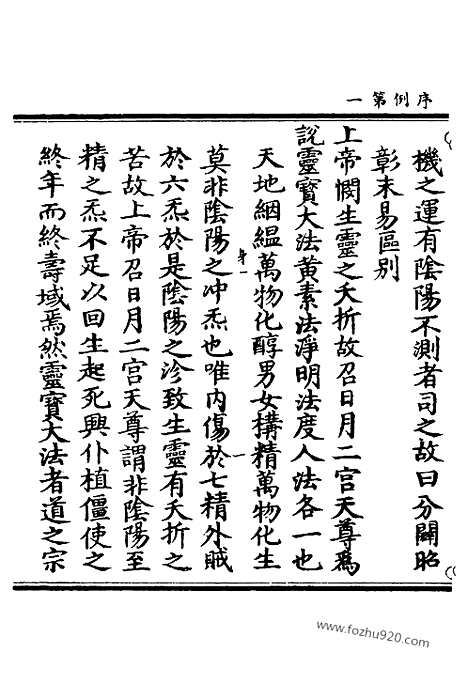 序例第一
機之運有陰陽不測者司之故曰分闢昭
彰未易區別
上帝憫生靈之夭折故召日月二宫天尊爲
說靈寶大法黄素法淨明法度人法各一也
天地絪緼萬物化醇男女構精萬物化生
莫非陰陽之冲炁也唯内傷於七精外賊
於六炁於是陰陽之沴致生靈有夭折之
苦故上帝召日月二宫天尊謂非陰陽至
精之炁不足以回生起死興仆植僵使之
終年而終壽域焉然靈寶大法者道之宗
www.fozhu920.com